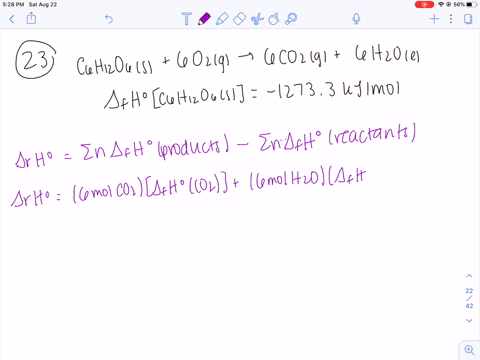 5:28 PM Sat Aug 22
56%
23
C6H12O6(s) + 6O2(g) → 6CO2(g) + 6H2O(l)
ΔfH°[C6H12O6(s)] = -1273.3 kJ/mol
ΔrH° = Σn ΔfH°(products) - Σn·ΔfH°(reactants)
ΔrH° = (6molCO2)[ΔfH°(CO2)] + (6molH2O)(ΔfH
22
/
42